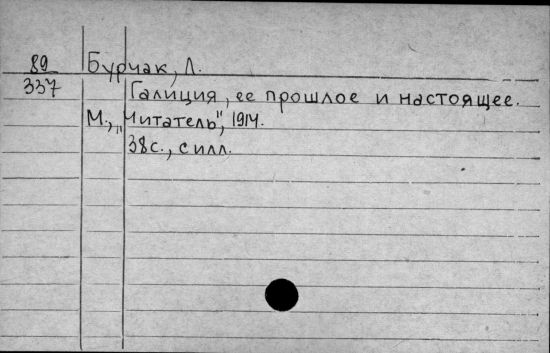 89 Бурчак, Л.
337 Галиция, ее прошлое и настоящее.
М., „Читатель", 1914.
38с., с илл.